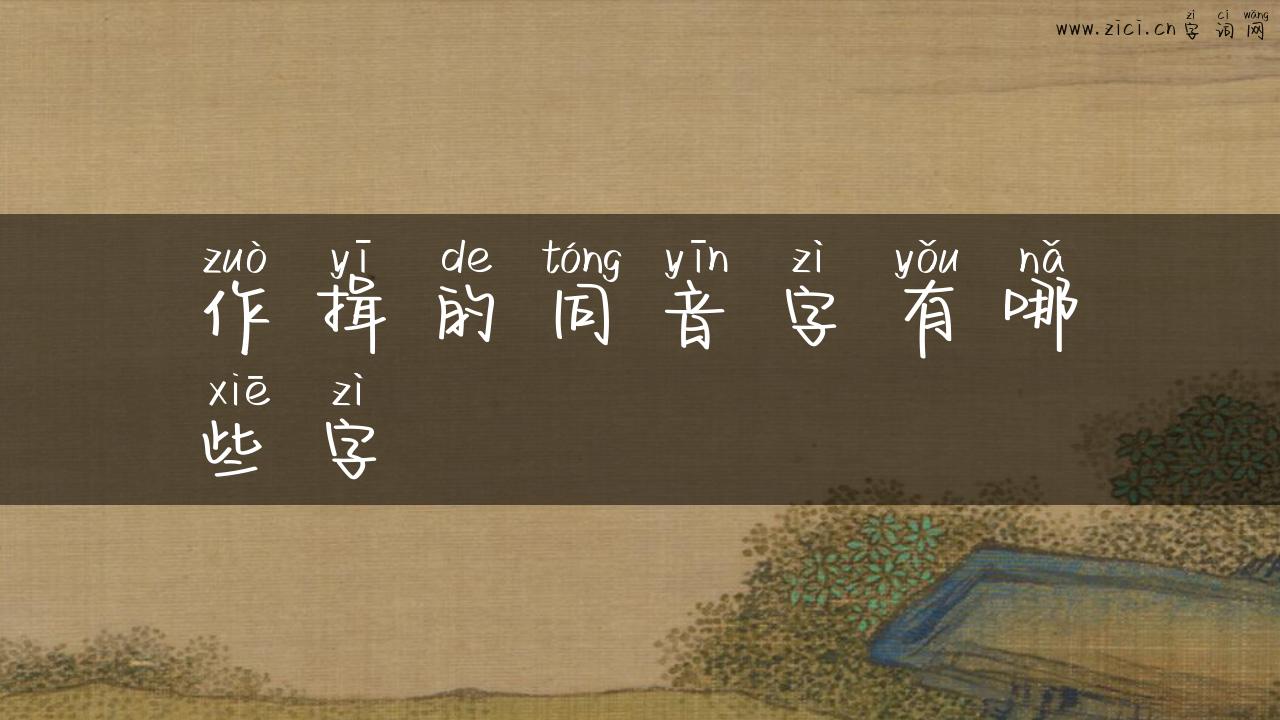 zì cí wǎng
www.zici.cn 字 词 网
zuò yī de tóng yīn zì yǒu nǎ
作 揖 的 同 音 字 有 哪
xiē zì
些 字